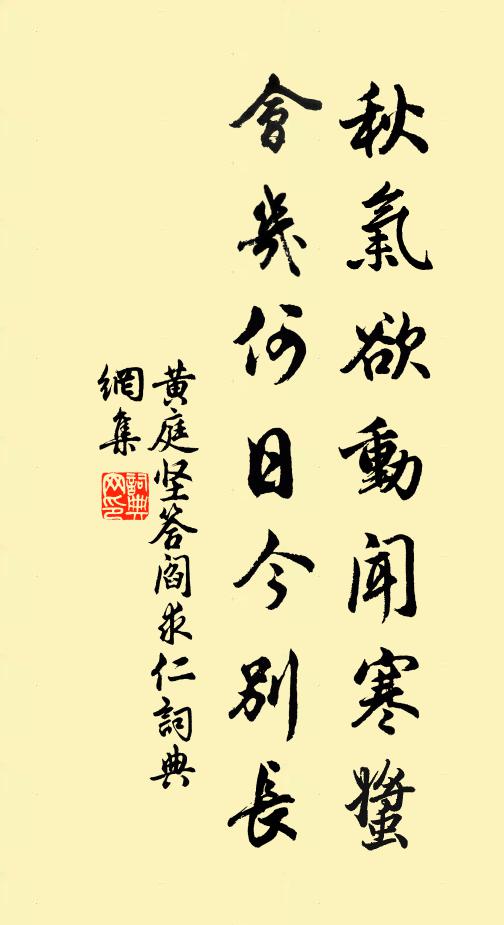 秋氣欲動聞寒螿
會幾何日今別長
黄庭坚答阎求仁詞典
網集
詞典
网印